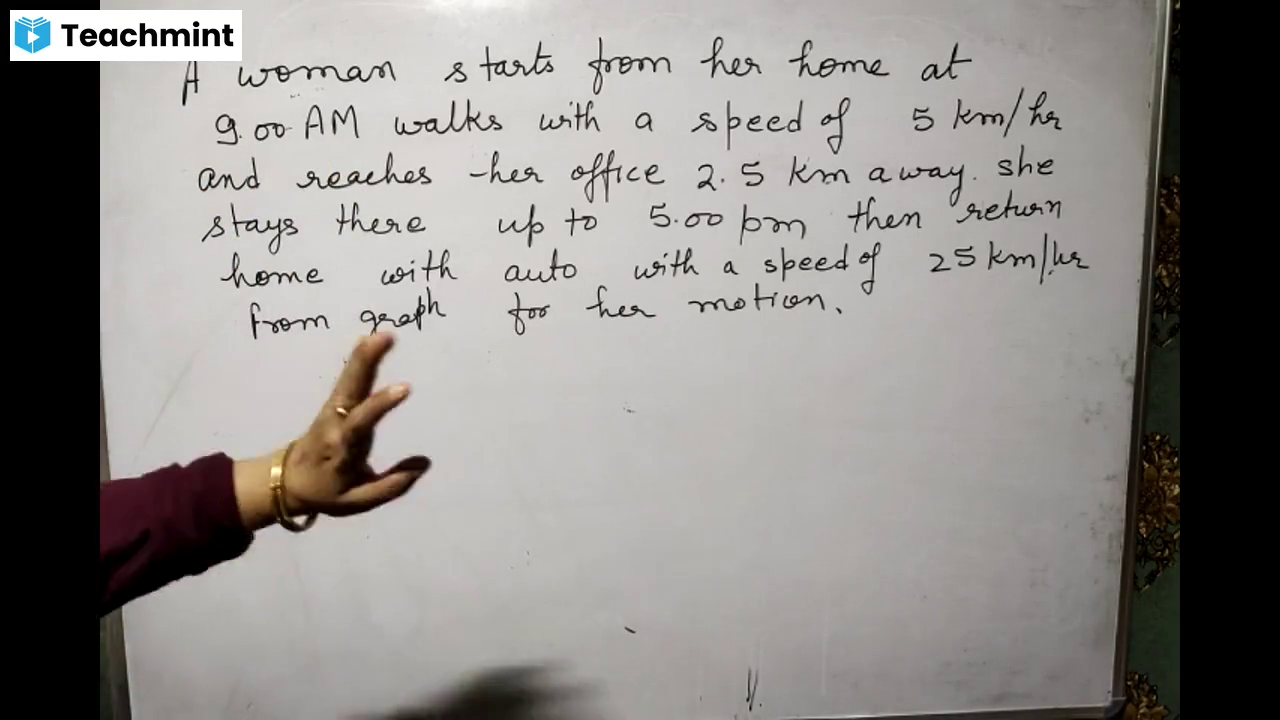 Teachmint
A woman starts from her home at
9.00 AM walks with a speed of 5 km/hr
and reaches her office 2.5 km away. she
stays there up to 5.00 pm then return
home with auto with a speed of 25 km/hr
from graph for her motion.